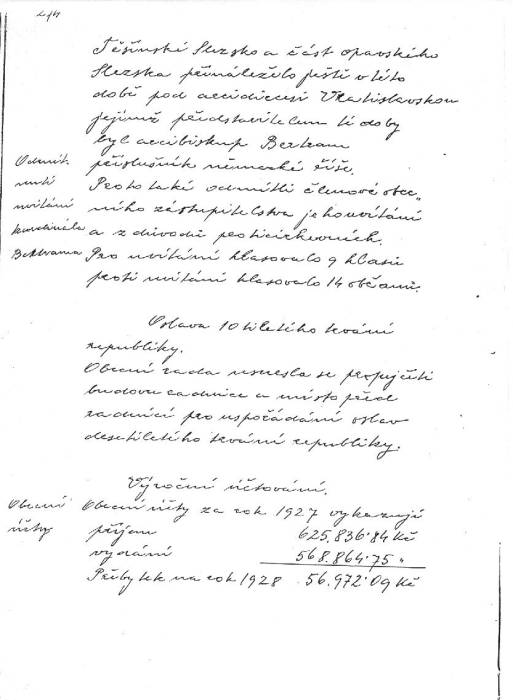 Těšínské Slezsko a část opavského
Slezska přináleželo ještě v této
době pod arcidiecesi Vratislavskou
jejímž představitelem té doby
byl arcibiskup Bertram
příslušník německé říše.
Proto také odmítli členové obec„
ního zastupitelstva jeho uvítání
a z důvodů proticírkevních.
Pro uvítání hlasovalo 9 hlasů
proti uvítání hlasovalo 14 občanů.
Odmít
nutí
uvítání
kardinála
Bertrama
Oslava 10tiletého trvání
republiky.
Obecní rada usnesla se propůjčiti
budovu radnice a místo před
radnicí pro uspořádání oslav
desetiletého trvání republiky.
Výroční účtování.
Obecní
účty
Obecní účty za rok 1927 vykazují
příjem 625.836·84 Kč
vydání 568.864·75 "
Přebytek na rok 1928 56.972·09 Kč